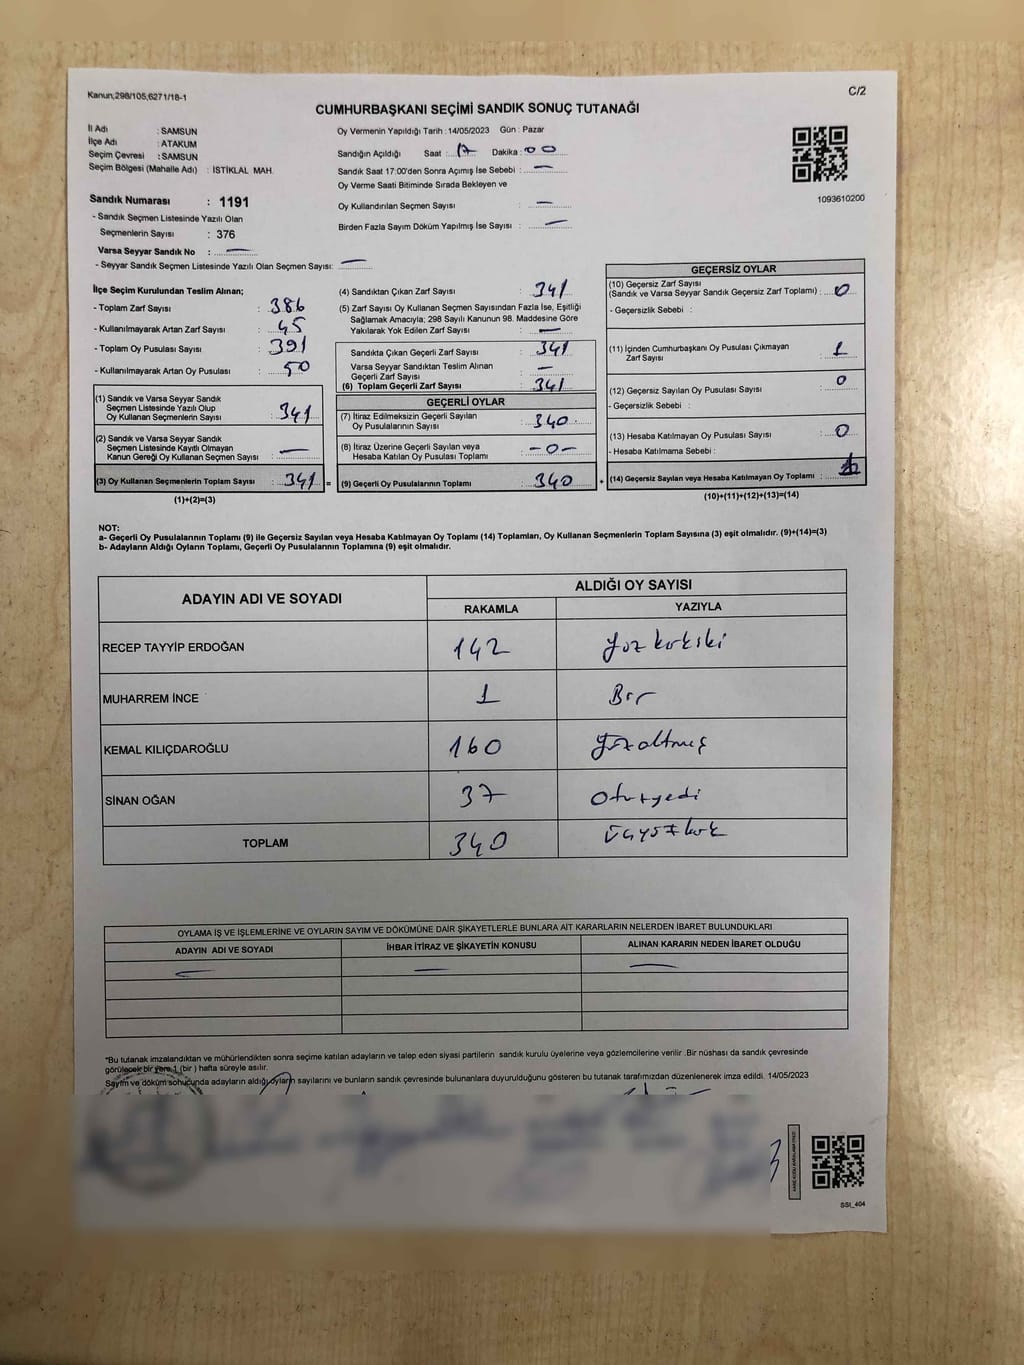 Kanun,298/105,6271/18-1
C/2
CUMHURBAŞKANI SEÇİMİ SANDIK SONUÇ TUTANAĞI
İl Adı : SAMSUN
İlçe Adı : ATAKUM
Seçim Çevresi : SAMSUN
Seçim Bölgesi (Mahalle Adı) : İSTİKLAL MAH.
Sandık Numarası : 1191
- Sandık Seçmen Listesinde Yazılı Olan
Seçmenlerin Sayısı : 376
Varsa Seyyar Sandık No : —
- Seyyar Sandık Seçmen Listesinde Yazılı Olan Seçmen Sayısı: —
Oy Vermenin Yapıldığı Tarih : 14/05/2023 Gün : Pazar
Sandığın Açıldığı Saat : 17 Dakika : 00
Sandık Saat 17:00'den Sonra Açımış İse Sebebi : —
Oy Verme Saati Bitiminde Sırada Bekleyen ve
Oy Kullandırılan Seçmen Sayısı : —
Birden Fazla Sayım Döküm Yapılmış İse Sayısı : —
1093610200
İlçe Seçim Kurulundan Teslim Alınan;
- Toplam Zarf Sayısı : 386
- Kullanılmayarak Artan Zarf Sayısı : 45
- Toplam Oy Pusulası Sayısı : 391
- Kullanılmayarak Artan Oy Pusulası : 50
(1) Sandık ve Varsa Seyyar Sandık
Seçmen Listesinde Yazılı Olup
Oy Kullanan Seçmenlerin Sayısı : 341
(2) Sandık ve Varsa Seyyar Sandık
Seçmen Listesinde Kayıtlı Olmayan
Kanun Gereği Oy Kullanan Seçmen Sayısı : —
(3) Oy Kullanan Seçmenlerin Toplam Sayısı : 341 =
(1)+(2)=(3)
(4) Sandıktan Çıkan Zarf Sayısı : 341
(5) Zarf Sayısı Oy Kullanan Seçmen Sayısından Fazla İse, Eşitliği
Sağlamak Amacıyla; 298 Sayılı Kanunun 98. Maddesine Göre
Yakılarak Yok Edilen Zarf Sayısı : —
Sandıkta Çıkan Geçerli Zarf Sayısı : 341
Varsa Seyyar Sandıktan Teslim Alınan
Geçerli Zarf Sayısı : —
(6) Toplam Geçerli Zarf Sayısı : 341
GEÇERLİ OYLAR
(7) İtiraz Edilmeksizin Geçerli Sayılan
Oy Pusulalarının Sayısı : 340
(8) İtiraz Üzerine Geçerli Sayılan veya
Hesaba Katılan Oy Pusulası Toplamı : -0-
(9) Geçerli Oy Pusulalarının Toplamı : 340 +
GEÇERSİZ OYLAR
(10) Geçersiz Zarf Sayısı
(Sandık ve Varsa Seyyar Sandık Geçersiz Zarf Toplamı) : 0
- Geçersizlik Sebebi :
(11) İçinden Cumhurbaşkanı Oy Pusulası Çıkmayan
Zarf Sayısı : 1
(12) Geçersiz Sayılan Oy Pusulası Sayısı : 0
- Geçersizlik Sebebi :
(13) Hesaba Katılmayan Oy Pusulası Sayısı : 0
- Hesaba Katılmama Sebebi :
(14) Geçersiz Sayılan veya Hesaba Katılmayan Oy Toplamı :
(10)+(11)+(12)+(13)=(14)
NOT:
a- Geçerli Oy Pusulalarının Toplamı (9) ile Geçersiz Sayılan veya Hesaba Katılmayan Oy Toplamı (14) Toplamları, Oy Kullanan Seçmenlerin Toplam Sayısına (3) eşit olmalıdır. (9)+(14)=(3)
b- Adayların Aldığı Oyların Toplamı, Geçerli Oy Pusulalarının Toplamına (9) eşit olmalıdır.
ADAYIN ADI VE SOYADI
ALDIĞI OY SAYISI
RAKAMLA YAZIYLA
RECEP TAYYİP ERDOĞAN 142 yüz kırkiki
MUHARREM İNCE 1 Bir
KEMAL KILIÇDAROĞLU 160 yüzaltmış
SİNAN OĞAN 37 otuzyedi
TOPLAM 340 üçyüzkırk
OYLAMA İŞ VE İŞLEMLERİNE VE OYLARIN SAYIM VE DÖKÜMÜNE DAİR ŞİKAYETLERLE BUNLARA AİT KARARLARIN NELERDEN İBARET BULUNDUKLARI
ADAYIN ADI VE SOYADI İHBAR İTİRAZ VE ŞİKAYETİN KONUSU ALINAN KARARIN NEDEN İBARET OLDUĞU
— — —
*Bu tutanak imzalandıktan ve mühürlendikten sonra seçime katılan adayların ve talep eden siyasi partilerin sandık kurulu üyelerine veya gözlemcilerine verilir .Bir nüshası da sandık çevresinde
görülecek bir yere 1 (bir ) hafta süreyle asılır.
Sayım ve döküm sonucunda adayların aldığı oyların sayılarını ve bunların sandık çevresinde bulunanlara duyurulduğunu gösteren bu tutanak tarafımızdan düzenlenerek imza edildi. 14/05/2023
SSI_404